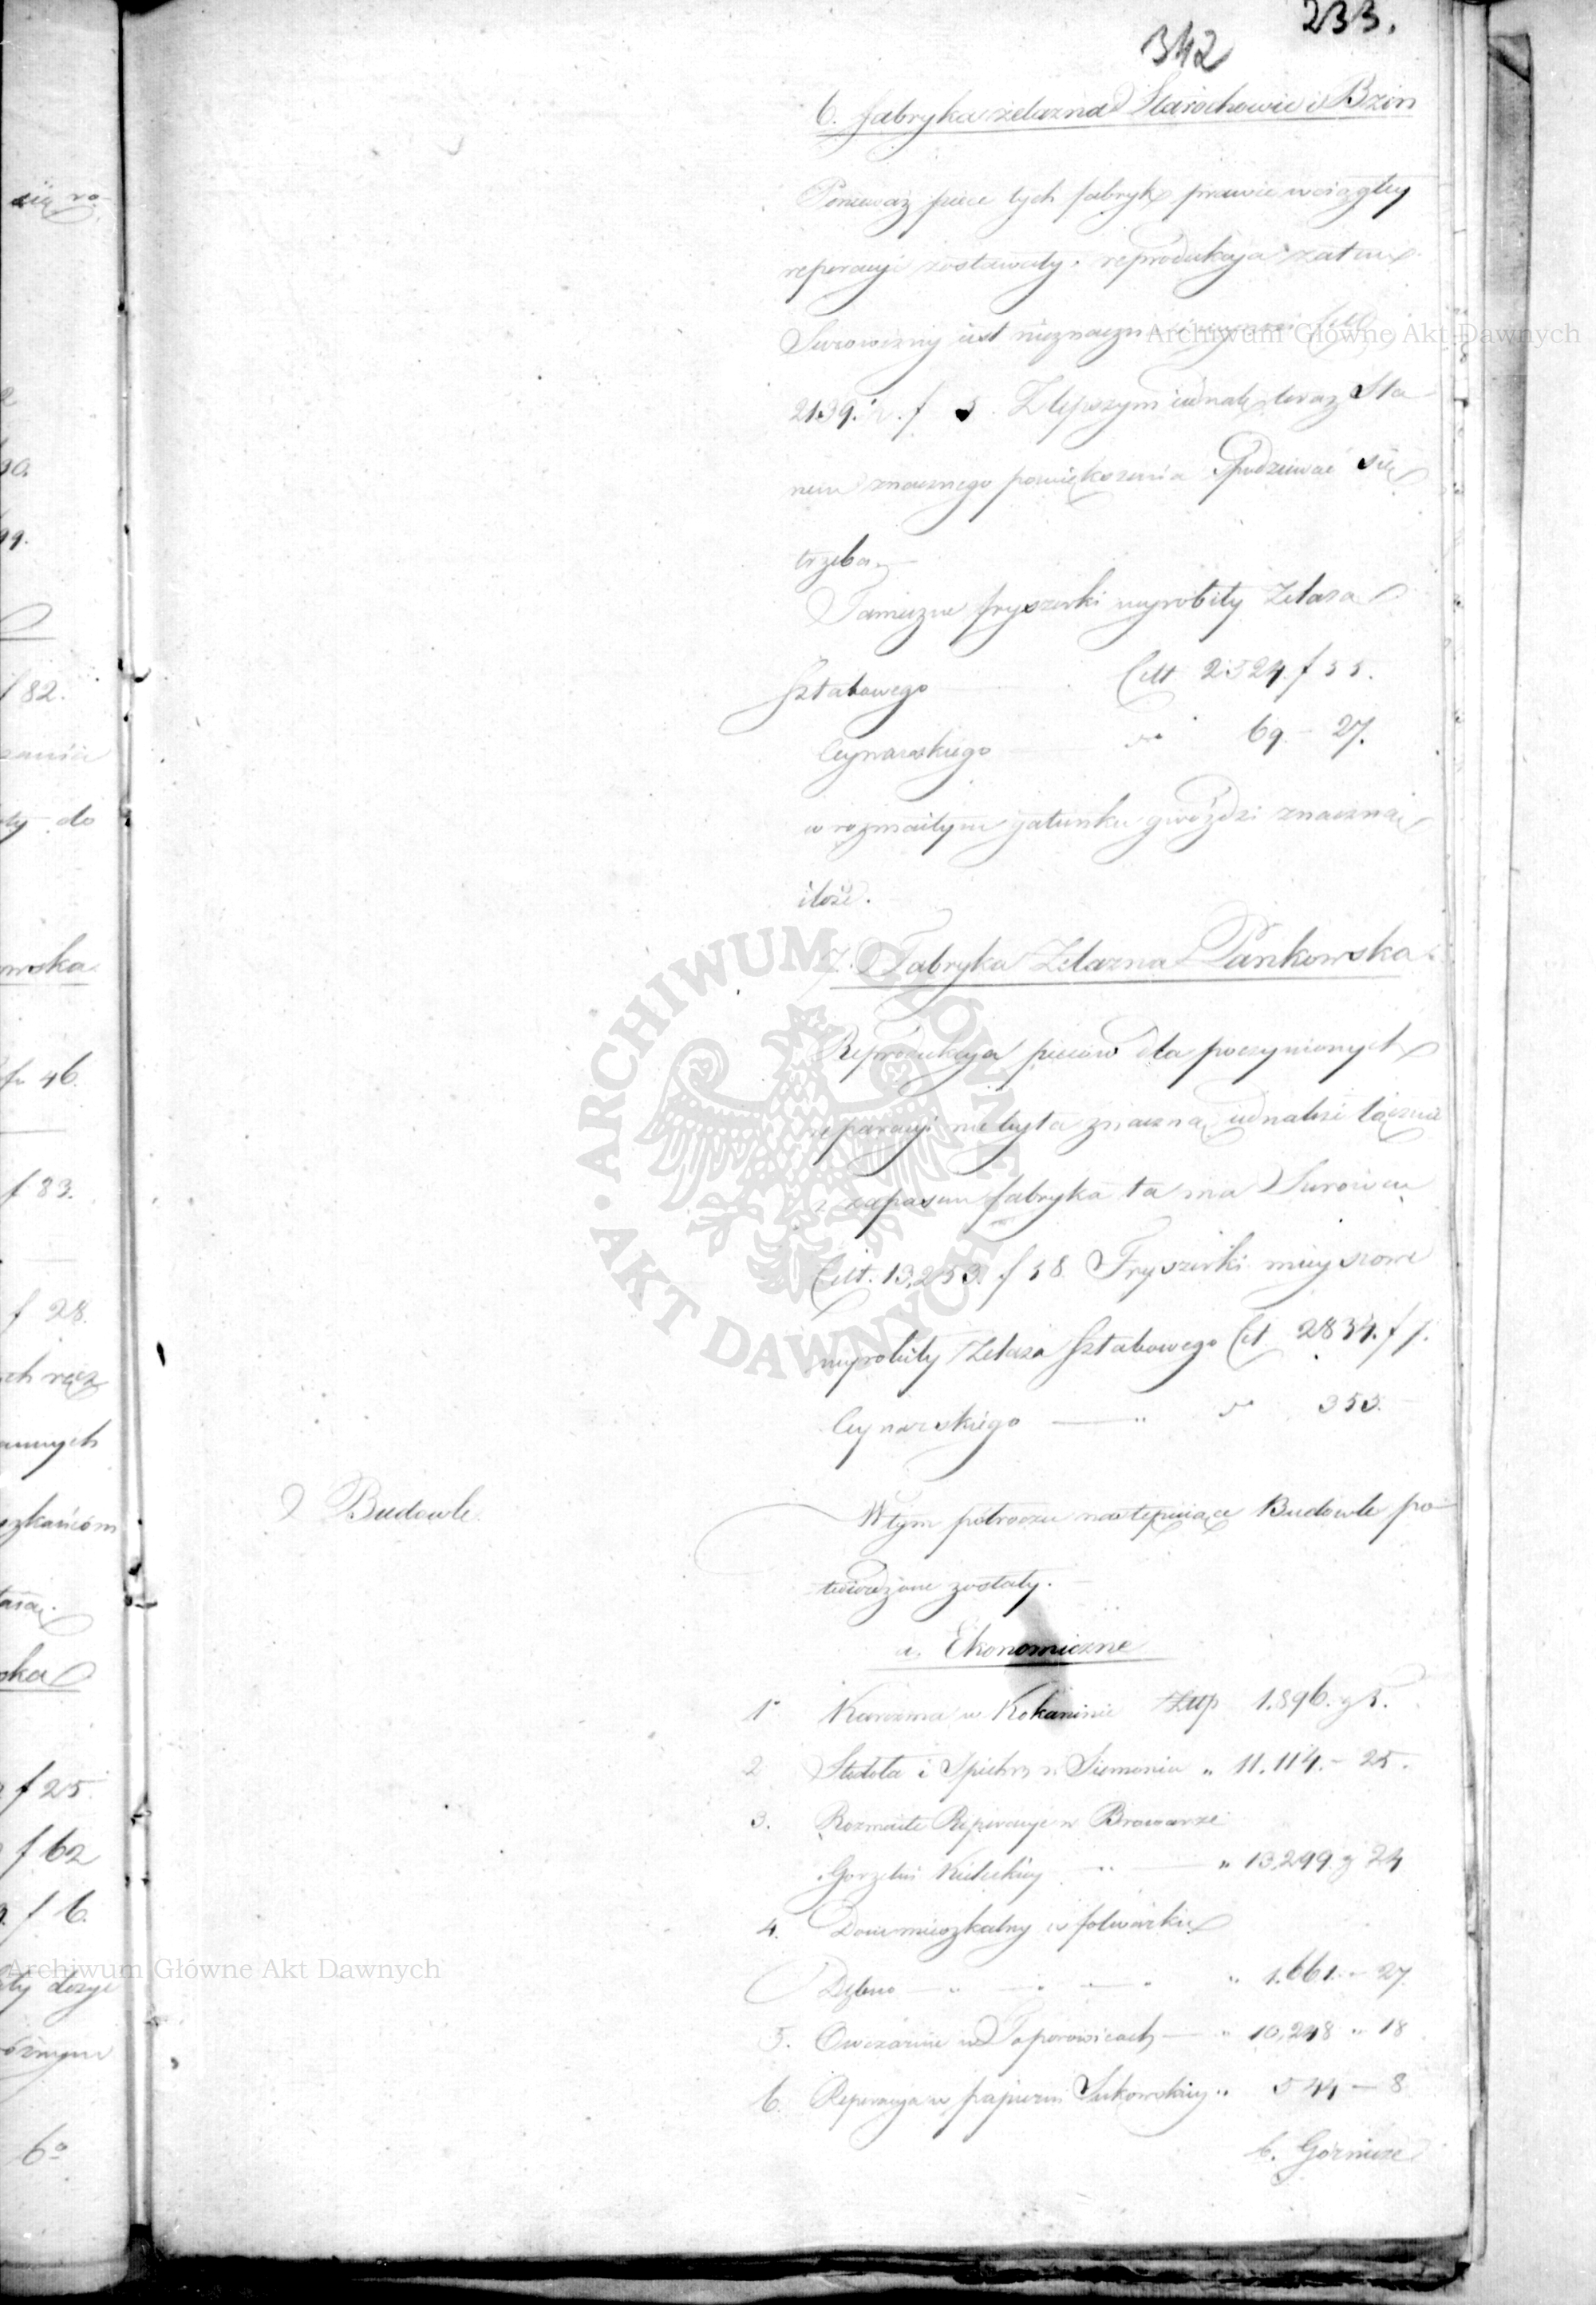 233.
342
6. fabryka żelazna Starochowic i Bzin
Ponieważ piece tych fabryk prawie wciągłey
reperacyi zostawały, reprodukcya zatem
Surowizny iest nieznaczn
2139. f 5. Zlepszym iednak teraz Sta
nem znacznego powiększenia Spodziewać się
trzeba.
Tameczne fryszerki wyrobiły Żelaza
Sztabowego Ctt 2524 f 55.
Ceynarskiego 69 - 27.
w rozmaitym gatunku gwoździ znaczną
ilość.
7. Fabryka Żelazna Pankowska
Reprodukcya pieców dla poczynionych
reparacyi niebyła znaczną iednakże łącznie
z zapasem fabryka ta ma Surowcu
Ctt. 13,253. f 58 Fryszerki mieyscowe
wyrobiły Żelaza Sztabowego Ct 2834. f 7.
Ceynarskiego — " 353.
Budowle
W tym półroczu następuiące Budowle po-
twierdzone zostały.
a, Ekonomiczne
1° Karczma w Kokaninie Złtp 1.896. g 5.
2 Stodoła i Spichrz w Siemonia " 11,114. - 25.
3. Rozmaite Reperacye w Browarze
Gorzelni Kieleckiey " 13,299. g 24
4. Dom mieszkalny w folwarku
Dębno — " 1.661. - 27.
5. Owczarnie w Toporowicach — " 10,248 " 18
6. Reperacya w papierni Sukowskiey " 544 — 8
b. Górnicze
się ro-
90.
99.
f 82.
zania
ły do
owska
fu 46.
f 83.
f 28.
ch ręcz
amnych
szkańcom
ska
f 25.
f 62
f 6.
ły dosyć
6°
Archiwum Główne Akt Dawnych
ARCHIWUM GŁÓWNE • AKT DAWNYCH •
Archiwum Główne Akt Dawnych